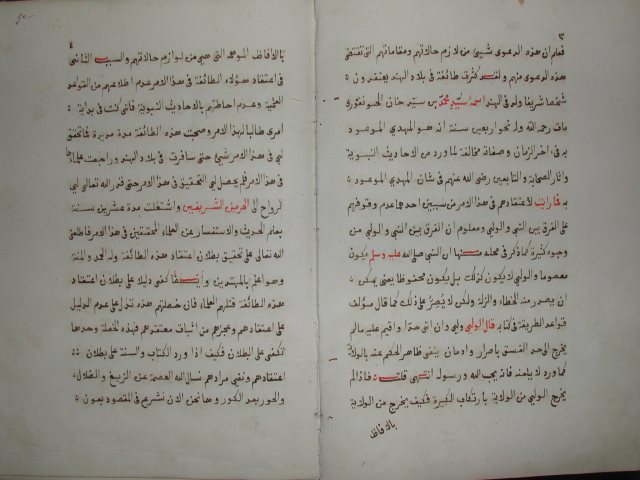 ٣
فعلم ان هذه الدعوى شيئ من لازم حالاتهم ومقاماتهم التى تقتضى
هذه الدعوى منهم ولقد كثرت طائفة في بلاد الهند يعتقدون ٥
شخصا شريفا ولد في الهند اسمه سيد محمد بن سيد خان الجونفورى
مات رحمه الله وله نحو اربعين سنة انه هو المهدي الموعود
به في اخر الزمان وصفاته مخالفة لما ورد من الاحاديث النبوية
واثار الصحابة والتابعين رضي الله عنهم في شان المهدي الموعود ٥
به فارايت لاعتقادهم في هذا الامر من سببين احدهما عدم وقوفهم
على الفرق بين النبي والولي ومعلوم ان الفرق بين النبي والولي من
وجوه كثيرة كما ذكر في محله منها ان النبي صلى الله عليه وسلم يكون
معصوما والولي لا يكون كذلك بل يكون محفوظا يعنى يمكن ٥
ان يصدر منه الخطاء والزلة ولكن لا يُصِرُّ على ذلك كما قال مؤلف
قواعد الطريقة في كتابه قال الولي ولي وان اتى حدا واقيم عليه مالم
يخرج الى حد الفسق باصرار وادمان ينفى ظاهر الحكم عنه بالولاية
كما ورد لا يلعنه فانه يحب الله ورسوله انتهى قلت ٥ فاذا لم
يخرج الولي من الولاية بارتكاب الكبيرة فكيف يخرج من الولاية
بالافاظ
٤
بالافاظ الموحمه التى هي من لوازم حالاتهم والسبب الثانى
في اعتقاد هؤلاء الطائفة في هذا الامر عدم اطلاعهم من القواعد
العلمية وعدم احاطتهم بالاحاديث النبوية فانى كنت في بداية ٥
امرى طالبا لهذا الامر وصحبت هذه الطائفة مدة مديدة فما تحقق
لي في هذا الامر شيئ حتى سافرت في بلاد الهند وراجعت علماءها
في هذا الامر فلم يحصل لي التحقيق في هذا الامر حتى قدر الله تعالى لي
الرواح الى الحرمين الشريفين واشتغلت مدة عشرين سنة
بعلم الحديث والاستفسار عن العلماء المحققين في هذا الامر فاطلعنى
الله تعالى على تحقيق بطلان اعتقاد هذه الطائفة وله الحمد والمنة
وهو اعلم بالمهتدين وايضا كفى دليلا على بطلان اعتقاد
هذه الطائفة قتلهم العلماء فان خصلتهم هذه تدل على عدم الدليل
على اعتقادهم وعجزهم من اثبات معتقدهم فهذه الخصلة وحدها
تكفى على البطلان فكيف اذا ورد الكتاب والسنة على بطلان ٥٥
اعتقادهم ونفى مرادهم نسال الله العصمة عن الزيغ والضلال ٥
والحور بعد الكور وها نحن الان نشرع في المقصود بعون ٥